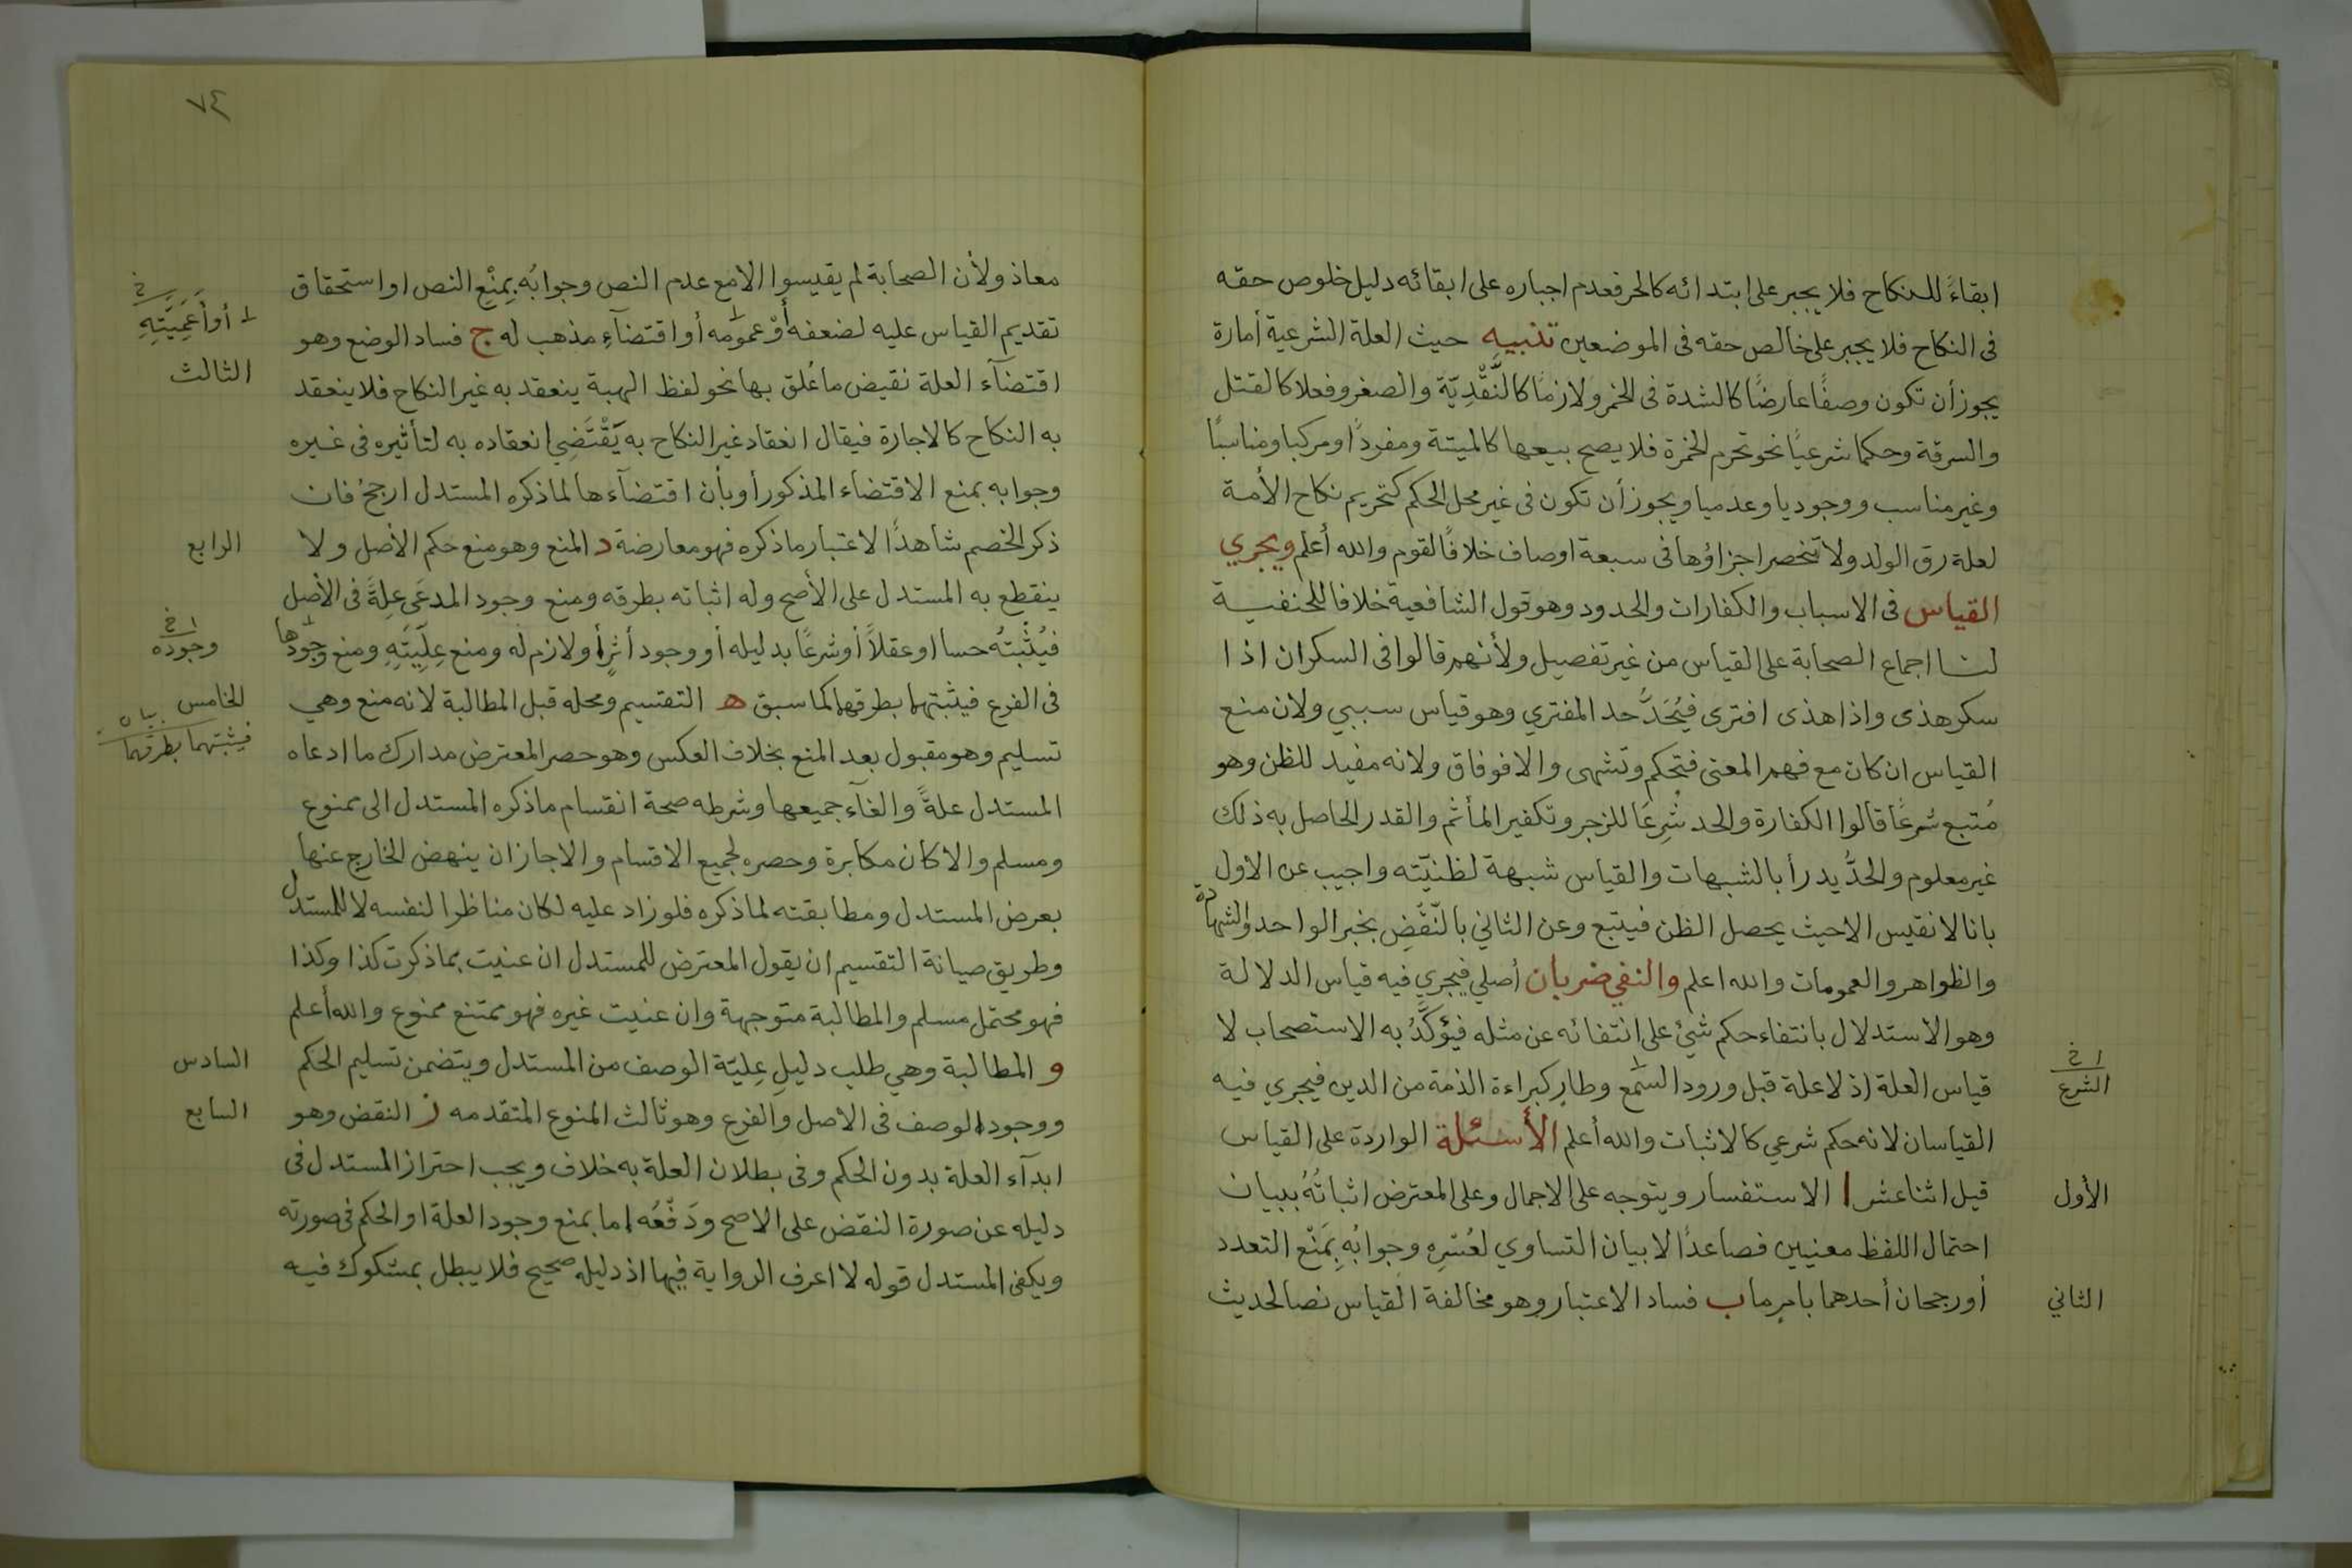 ابقاءً للنكاح فلا يجبر على ابتدائه كالحر فعدم اجباره على ابقائه دليل خلوص حقه
فى النكاح فلا يجبر على خالص حقه فى الموضعين تنبيه حيث العلة الشرعية أمارة
يجوز أن تكون وصفًا عارضًا كالشدة فى الخمر ولازمًا كالنَّقْدِيّة والصغر وفعلا كالقتل
والسرقة وحكما شرعيًا نحو تحرم الخمرة فلا يصح بيعها كالميتة ومفردًا ومركبا ومناسبًا
وغير مناسب ووجوديا وعدميا ويجوز أن تكون فى غير محل الحكم كتحريم نكاح الأمة
لعلة رق الولد ولا تنحصر اجزاؤها فى سبعة اوصاف خلافًا لقوم والله أعلم ويجري
القياس فى الاسباب والكفارات والحدود وهو قول الشافعية خلافا للحنفية
لنا اجماع الصحابة على القياس من غير تفصيل ولأنهم قالوا فى السكران اذا
سكر هذى واذا هذى افترى فيُحَدُّ حد المفتري وهو قياس سببي ولان منع
القياس ان كان مع فهم المعنى فتحكم وتشهى والا فوفاق ولانه مفيد للظن وهو
مُتبع شرعًا قالوا الكفارة والحد شُرِعَا للزجر وتكفير المأثم والقدر الحاصل به ذلك
غير معلوم والحدُّ يدرأ بالشبهات والقياس شبهة لظنيّته واجيب عن الاول
بانا لا نقيس الا حيث يحصل الظن فيتبع وعن الثاني بالنّقْضِ بخبر الواحد والشهادة
والظواهر والعمومات والله اعلم والنفي ضربان أصلي فيجري فيه قياس الدلالة
وهو الاستدلال بانتفاء حكم شيئ على انتفائه عن مثله فيُؤكَّدُ به الاستصحاب لا
قياس العلة اذ لا علة قبل ورود السمع وطارٍ كبراءة الذمة من الدين فيجري فيه
ا خ
الشرع
القياسان لانه حكم شرعي كالاثبات والله أعلم الأسئلة الواردة على القياس
قيل اثنا عشر ا الاستفسار ويتوجه على الاجمال وعلى المعترض اثباتُهُ ببيان
الأول
احتمال اللفظ معنيين فصاعدًا لا بيان التساوي لعُسْرِهِ وجوابُهِ بِمَنْع التعدد
أو رجحان أحدهما بامرما ب فساد الاعتبار وهو مخالفة القياس نصا لحديث
الثاني
٧٤
معاذ ولأن الصحابة لم يقيسوا الا مع عدم النص وجوابُه بِمنْعِ النص او استحقاق
تقديم القياس عليه لضعفه أوْ عمومه أو اقتضآءِ مذهب له ج فساد الوضع وهو
خ
أو أَعَمِيَّتِهِ
اقتضآء العلة نقيض ما عُلق بها نحو لفظ الهبة ينعقد به غير النكاح فلا ينعقد
الثالث
به النكاح كالاجارة فيقال انعقاد غير النكاح به يَقْتَضِي انعقاده به لتأثيره فى غيره
وجوابه بمنع الاقتضاء المذكور أو بأن اقتضآءها لما ذكره المستدل ارجحُ فان
ذكر الخصم شاهدًا لاعتبار ما ذكره فهو معارضة د المنع وهو منع حكم الأصل ولا
الرابع
ينقطع به المستدل على الأصح وله اثباته بطرقه ومنع وجود المدعَى عِلةً فى الأصل
فيُثْبتُه حسا او عقلاً أو شرعًا بدليله أو وجود أثرٍ أو لازم له ومنع عِلِّيَّتِهِ ومنع وجودها
ا خ
وجوده
فى الفرع فيثبتهما بطرقهما كما سبق ه التقسيم ومحله قبل المطالبة لانه منع وهي
الخامس
بيان
فيثبتهما بطرقهما
تسليم وهو مقبول بعد المنع بخلاف العكس وهو حصر المعترض مدارك ما ادعاه
المستدل علةً والغآء جميعها وشرطه صحة انقسام ما ذكره المستدل الى ممنوع
ومسلم والا كان مكابرة وحصره لجميع الاقسام والا جاز ان ينهض الخارج عنها
بعرض المستدل ومطابقته لما ذكره فلو زاد عليه لكان مناظرا لنفسه لا للمستدل
وطريق صيانة التقسيم ان يقول المعترض للمستدل ان عنيت بما ذكرت كذا وكذا
فهو محتمل مسلم والمطالبة متوجهة وان عنيت غيره فهو ممتنع ممنوع والله أعلم
و المطالبة وهي طلب دليلِ عِليّة الوصف من المستدل ويتضمن تسليم الحكم
السادس
ووجود الوصف فى الاصل والفرع وهو ثالث المنوع المتقدمه ز النقض وهو
السابع
ابدآء العلة بدون الحكم وفى بطلان العلة به خلاف ويجب احتراز المستدل فى
دليله عن صورة النقض على الاصح ودَفْعُه اما بمنع وجود العلة او الحكم فى صورته
ويكفى المستدل قوله لا اعرف الرواية فيها اذ دليله صحيح فلا يبطل بمشكوك فيه